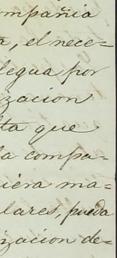 ompañia
a, el nece-
legua por
izacion
ta que
la compa-
uiera ma-
lares, pueda
izacion de-